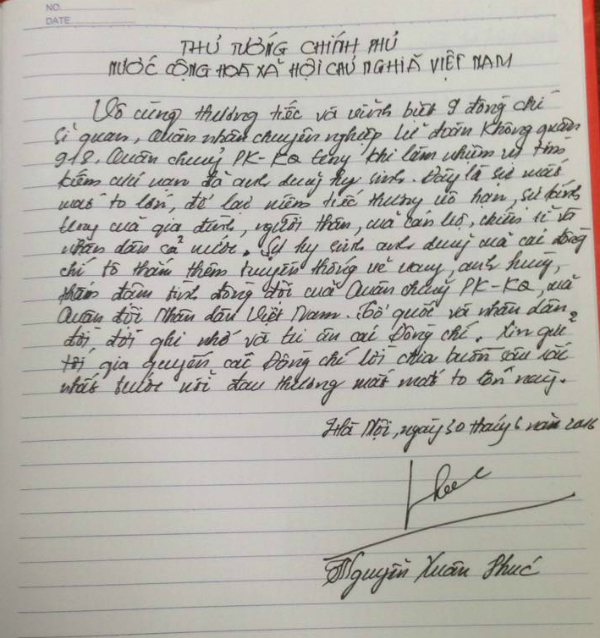 NO.
DATE
THỦ TƯỚNG CHÍNH PHỦ
NƯỚC CỘNG HOÀ XÃ HỘI CHỦ NGHĨA VIỆT NAM
Vô cùng thương tiếc và vĩnh biệt 9 đồng chí
sĩ quan, Quân nhân chuyên nghiệp Lữ đoàn Không quân
918, Quân chủng PK-KQ trong khi làm nhiệm vụ tìm
kiếm cứu nạn đã anh dũng hy sinh. Đây là sự mất
mát to lớn, để lại niềm tiếc thương vô hạn, sự kính
trọng của gia đình, người thân, của cán bộ, chiến sĩ và
nhân dân cả nước. Sự hy sinh anh dũng của các đồng
chí tô thắm thêm truyền thống vẻ vang, anh hùng,
thắm đậm tình đồng đội của Quân chủng PK-KQ, của
Quân đội Nhân dân Việt Nam. Tổ quốc và nhân dân
đời đời ghi nhớ và tri ân các Đồng chí. Xin gửi
tới gia quyến các Đồng chí lời chia buồn sâu sắc
nhất trước nỗi đau thương mất mát to lớn này.
Hà Nội, ngày 30 tháng 6 năm 2016
Phuc
Nguyễn Xuân Phúc